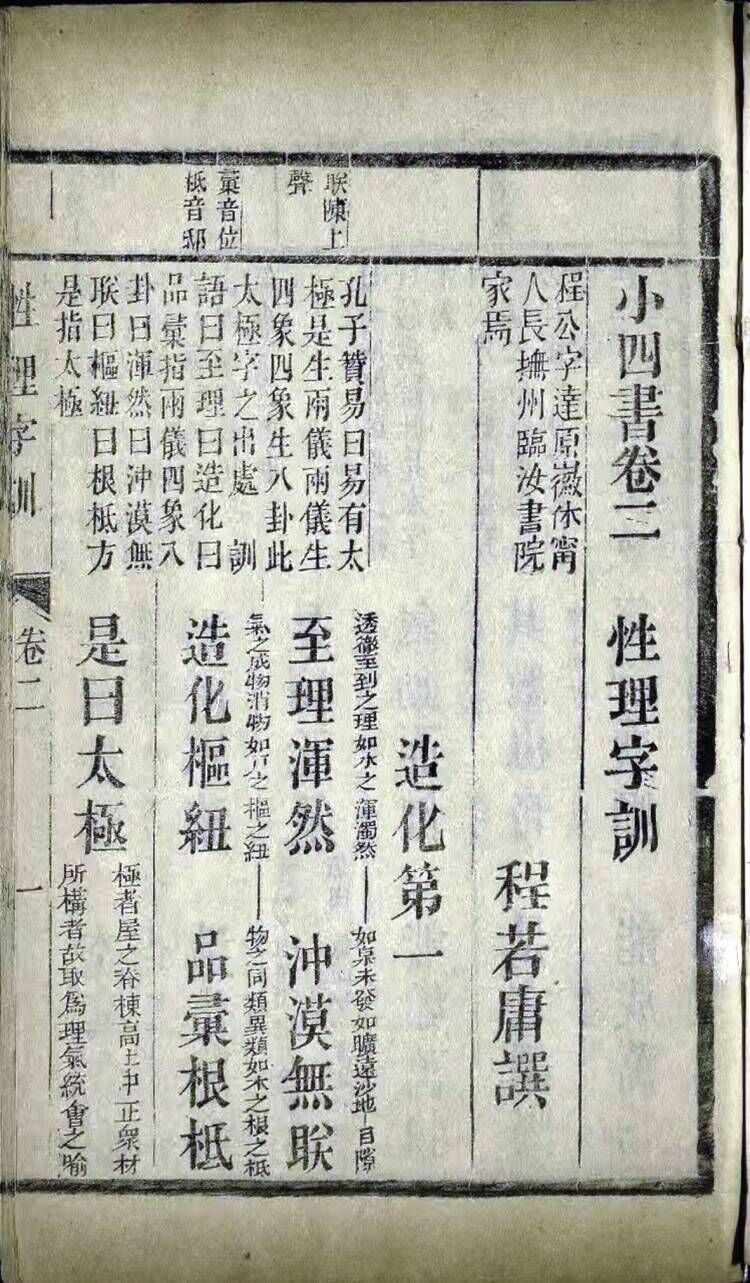 小四書卷二　性理字訓
程若庸譔
程公字達原徽休甯
人長撫州臨汝書院
家焉
造化第一
朕陳上
聲
孔子贊易曰易有太
極是生兩儀兩儀生
四象四象生八卦此
太極字之出處　訓
語曰至理曰造化曰
品彙指兩儀四象八
卦曰渾然曰沖漠無
朕曰樞紐曰根柢方
是指太極
彙音位
柢音邸
透徹至到之理如水之渾濁然
如泉未發如曠遠沙地
至理渾然　沖漠無朕
氣之成物消物如戶之樞之紐
物之同類異類如木之根之柢
造化樞紐　品彙根柢
是曰太極
極者屋之脊棟高上中正衆材
所構者故取爲理氣統會之喻
性理字訓　卷二　一